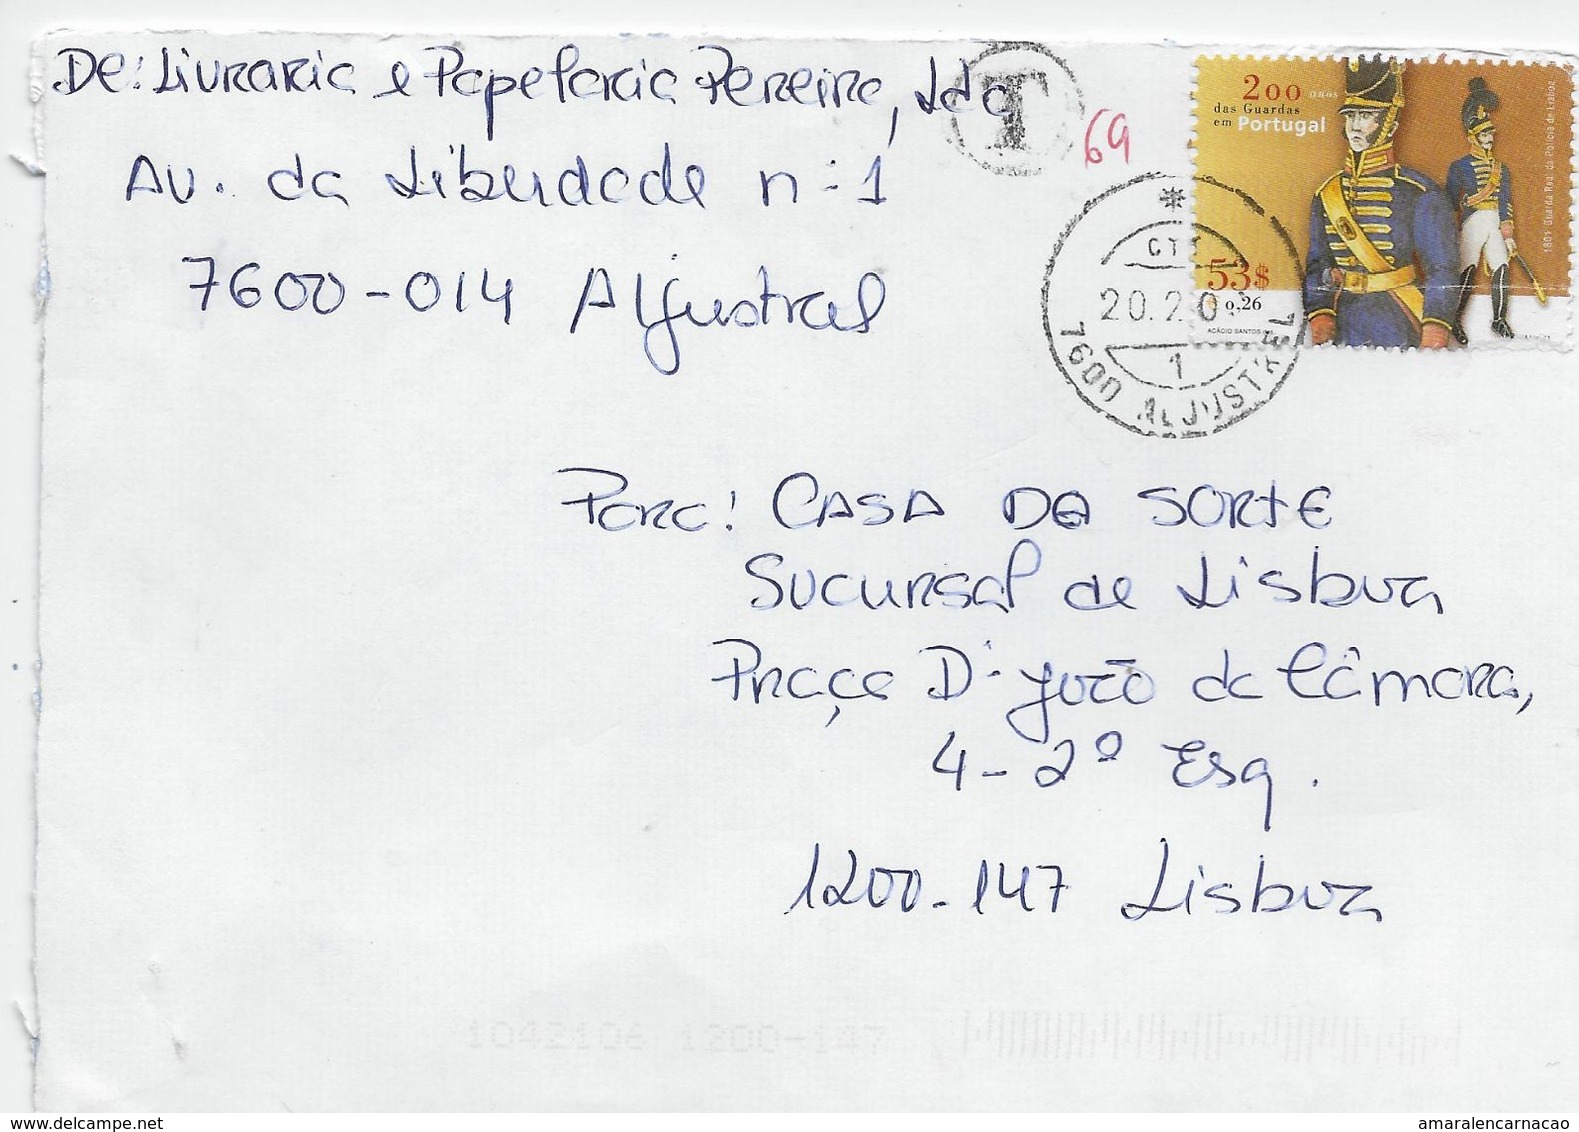 De: Livraria e Papelaria Pereira, Lda
Av. da Liberdade nº 1
7600-014 Aljustrel
T
69
200 anos
das Guardas
em Portugal
1801 Guarda Real da Polícia de Lisboa
53$
€ 0,26
ACÁCIO SANTOS
*
CTT
20.2.0
1
7600 ALJUSTREL
Para: CASA DA SORTE
Sucursal de Lisboa
Praça D. João da Câmara,
4-2º Esq.
1200-147 Lisboa
1042106 1200-147
www.delcampe.net
amaralencarnacao